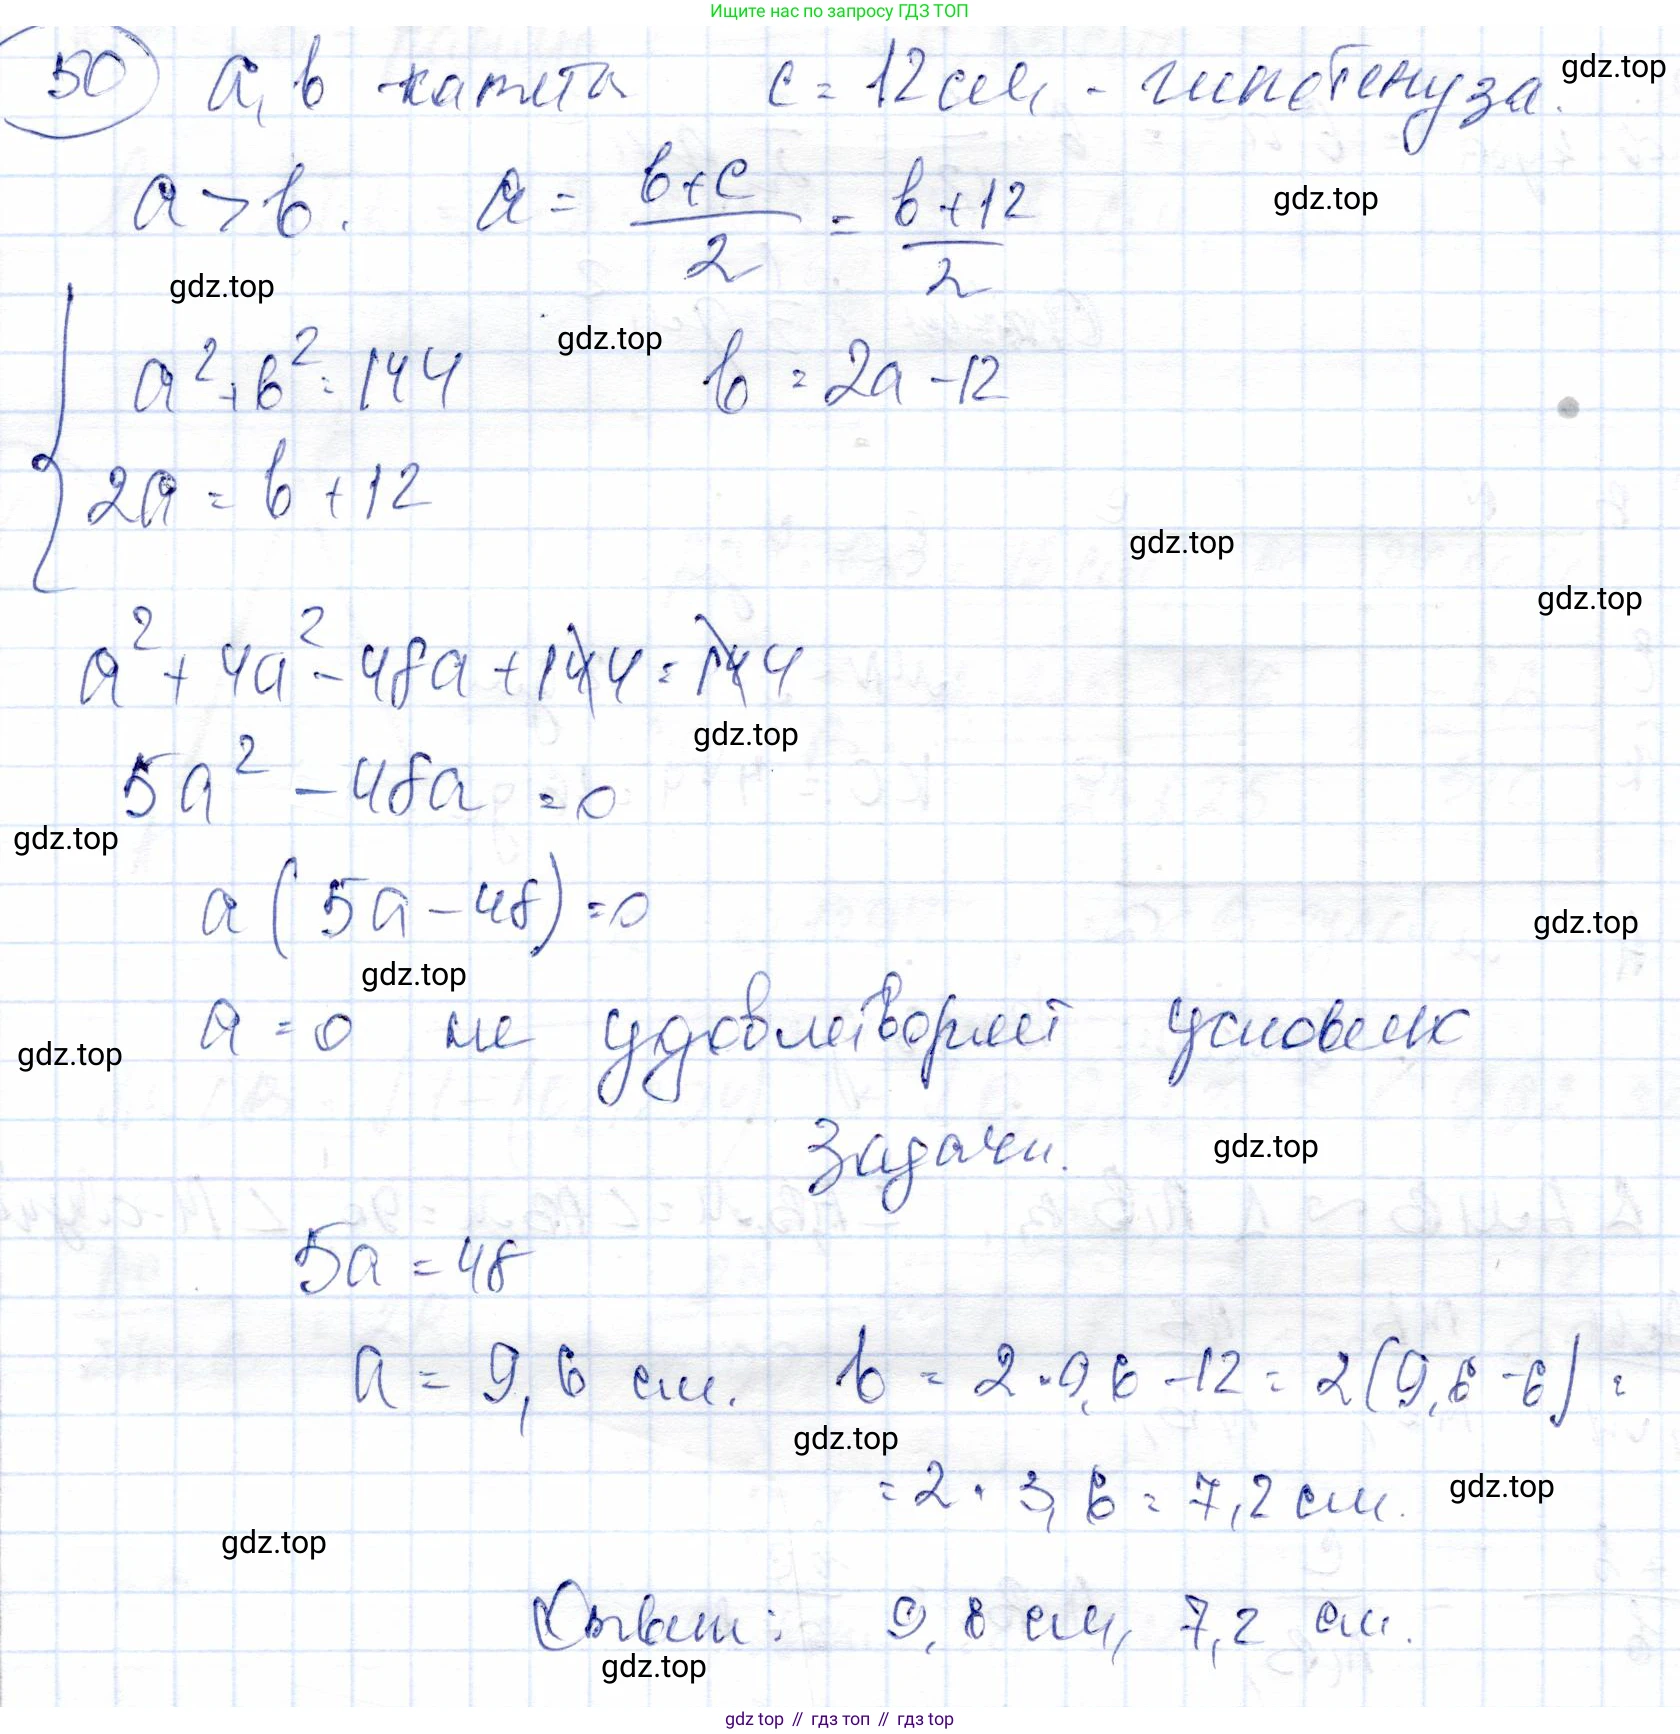 Ищите нас по запросу ГДЗ ТОП
50 a, b катета c = 12 см - гипотенуза.
gdz.top
a > b. a = (b+c)/2 = (b+12)/2
gdz.top
gdz.top
a² + b² = 144 b = 2a - 12
gdz.top
2a = b + 12
gdz.top
gdz.top
a² + 4a² - 48a + 144 = 144
gdz.top
5a² - 48a = 0
gdz.top
a(5a - 48) = 0
gdz.top
gdz.top
a = 0 не удовлетворяет условию
gdz.top
задачи.
gdz.top
5a = 48
a = 9,6 см. b = 2·9,6 - 12 = 2(9,6 - 6) =
gdz.top
= 2 · 3,6 = 7,2 см.
gdz.top
gdz.top
Ответ: 9,8 см, 7,2 см.
gdz.top
gdz top // гдз топ // гдз top